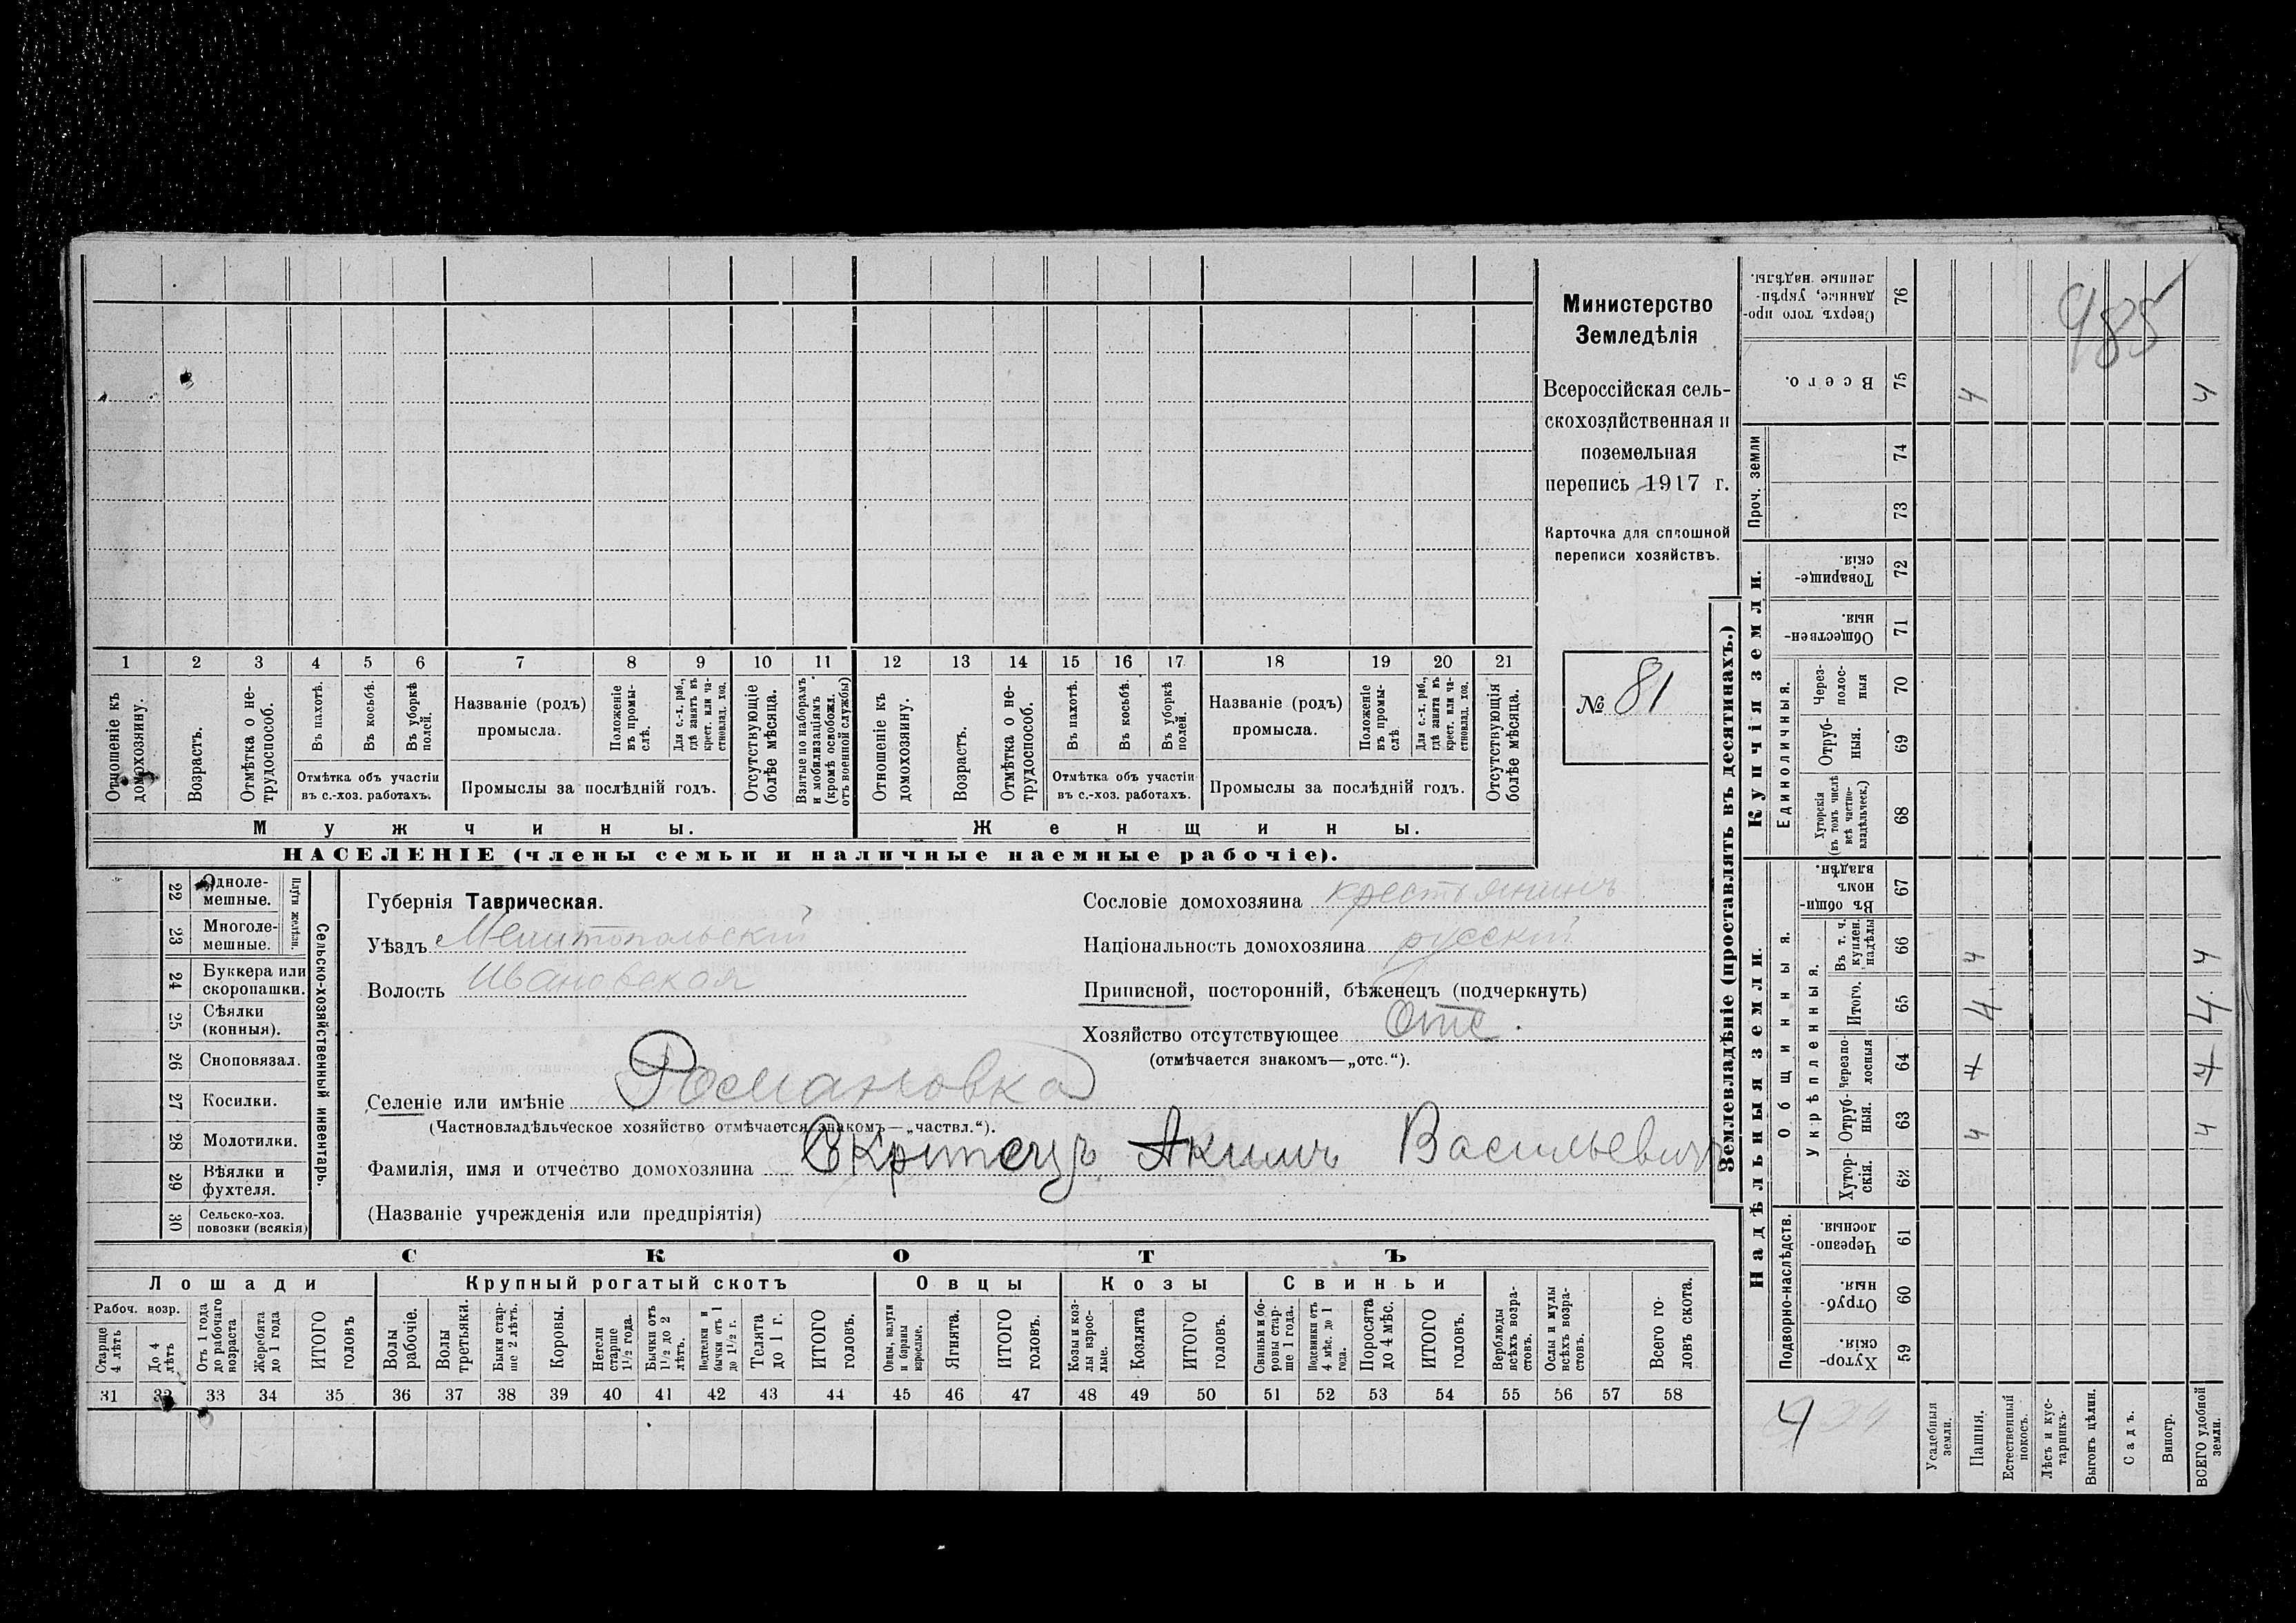 Министерство
Земледѣлія
Всероссійская сель-
скохозяйственная и
поземельная
перепись 1917 г.
Карточка для сплошной
переписи хозяйствъ.
№ 81
1 2 3 4 5 6 7 8 9 10 11 12 13 14 15 16 17 18 19 20 21
Отношеніе къ домохозяину.
Возрастъ.
Отмѣтка о не-трудоспособ.
Въ пахотѣ.
Въ косьбѣ.
Въ уборкѣ полей.
Отмѣтка объ участіи въ с.-хоз. работахъ.
Названіе (родъ) промысла.
Положеніе въ промы-слѣ.
Для с.-х. раб., гдѣ занятъ въ крест. или ча-стновлад. хоз.
Промыслы за послѣдній годъ.
Отсутствующіе болѣе мѣсяца.
Взятые по наборамъ и мобилизаціямъ (кромѣ освобожд. отъ военной службы)
Отношеніе къ домохозяину.
Возрастъ.
Отмѣтка о не-трудоспособ.
Въ пахотѣ.
Въ косьбѣ.
Въ уборкѣ полей.
Отмѣтка объ участіи въ с.-хоз. работахъ.
Названіе (родъ) промысла.
Положеніе въ промы-слѣ.
Для с.-х. раб., гдѣ занята въ крест. или ча-стновлад. хоз.
Промыслы за послѣдній годъ.
Отсутствующія болѣе мѣсяца.
Мужчины.
Женщины.
НАСЕЛЕНІЕ (члены семьи и наличные наемные рабочіе).
Сельско-хозяйственный инвентарь.
Плуги желѣзн.
22 Одноле-мешные.
23 Многоле-мешные.
24 Буккера или скоропашки.
25 Сѣялки (конныя).
26 Сноповязал.
27 Косилки.
28 Молотилки.
29 Вѣялки и фухтеля.
30 Сельско-хоз. повозки (всякія)
Губернія Таврическая.
Уѣздъ Мелитопольскій
Волость Ивановская
Сословіе домохозяина крестьянинъ
Національность домохозяина русскій
Приписной, посторонній, бѣженецъ (подчеркнуть)
Хозяйство отсутствующее Отс.
(отмѣчается знакомъ—„отс.“).
Селеніе или имѣніе Романовка
(Частновладѣльческое хозяйство отмѣчается знакомъ—„частвл.“).
Фамилія, имя и отчество домохозяина Акимъ Васильевичъ
(Названіе учрежденія или предпріятія)
СКОТЪ
Лошади
Крупный рогатый скотъ
Овцы
Козы
Свиньи
Рабоч. возр.
Старше 4 лѣтъ
До 4 лѣтъ
Отъ 1 года до рабочаго возраста
Жеребята до 1 года
ИТОГО головъ
Волы рабочіе.
Волы третьяки.
Быки стар-ше 2 лѣтъ.
Коровы.
Нетели старше 1½ года.
Бычки отъ 1½ до 2 лѣтъ.
Подтелки и бычки отъ 1 до 1½ г.
Телята до 1 г.
ИТОГО головъ.
Овцы, валухи и бараны взрослые.
Ягнята.
ИТОГО головъ.
Козы и коз-лы взрос-лые.
Козлята
ИТОГО головъ.
Свиньи и бо-ровы стар-ше 1 года.
Подсвинки отъ 4 мѣс. до 1 года.
Поросята до 4 мѣс.
ИТОГО головъ.
Верблюды всѣхъ возра-стовъ.
Ослы и мулы всѣхъ возра-стовъ.
Всего го-ловъ скота.
31 32 33 34 35 36 37 38 39 40 41 42 43 44 45 46 47 48 49 50 51 52 53 54 55 56 57 58
Землевладѣніе (проставлять въ десятинахъ.)
Надѣльныя земли.
Купчія земли.
Проч. земли
Подворно-наслѣдств.
Общинныя.
Укрѣпленныя.
Единоличныя.
Сверхъ того про-данные, укрѣп-ленные надѣлы. 76
Всего. 75 4 4
74
73
Товарище-скія 72
Обществен-ныя. 71
Через-полос-ныя 70
Отруб-ныя. 69
Хуторскія (въ томъ числѣ всѣ частно-владѣльческ.) 68
Въ общин-номъ владѣн. 67
Въ т. ч. куплен. надѣлы 66 4 4
Итого. 65 4 4
Черезпо-лосныя 64 4 4
Отруб-ныя. 63 4 4
Хутор-скія. 62
Черезпо-лосныя. 61
Отруб-ныя. 60
Хутор-скія. 59
Усадебныя земли.
Пашня.
Естественный покосъ.
Лѣсъ и кус-тарникъ.
Выгонъ цѣлин.
Садъ.
Виногр.
ВСЕГО удобной земли.
985
4